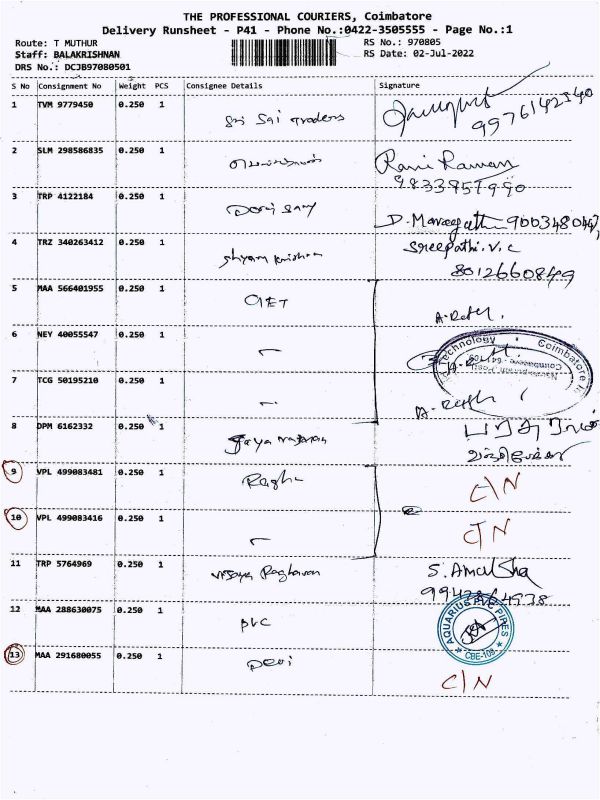 THE PROFESSIONAL COURIERS, Coimbatore
Delivery Runsheet - P41 - Phone No.:0422-3505555 - Page No.:1
Route: T MUTHUR RS No.: 970805
Staff: BALAKRISHNAN RS Date: 02-Jul-2022
DRS No.: DCJB97080501
S No Consignment No Weight PCS Consignee Details Signature
1 TVM 9779450 0.250 1 Sri Sai Traders
9976142340
2 SLM 298586835 0.250 1 Rani Raman
9833957990
3 TRP 4122184 0.250 1 D.
4 TRZ 340263412 0.250 1 Shyam Krishnan Sreepathi.V.C
8012660849
5 MAA 566401955 0.250 1 CIET
6 NEY 40055547 0.250 1
7 TCG 50195210 0.250 1
Technology Coimbatore
8 DPM 6162332 0.250 1
9 VPL 499083481 0.250 1 Raghu C/N
10 VPL 499083416 0.250 1 C/N
11 TRP 5764969 0.250 1 Vijaya Raghavan S. Amal Sha
12 MAA 288630075 0.250 1 PVC
AQUARIUS PVC PIPES
CBE-109
13 MAA 291680055 0.250 1 Devi C/N